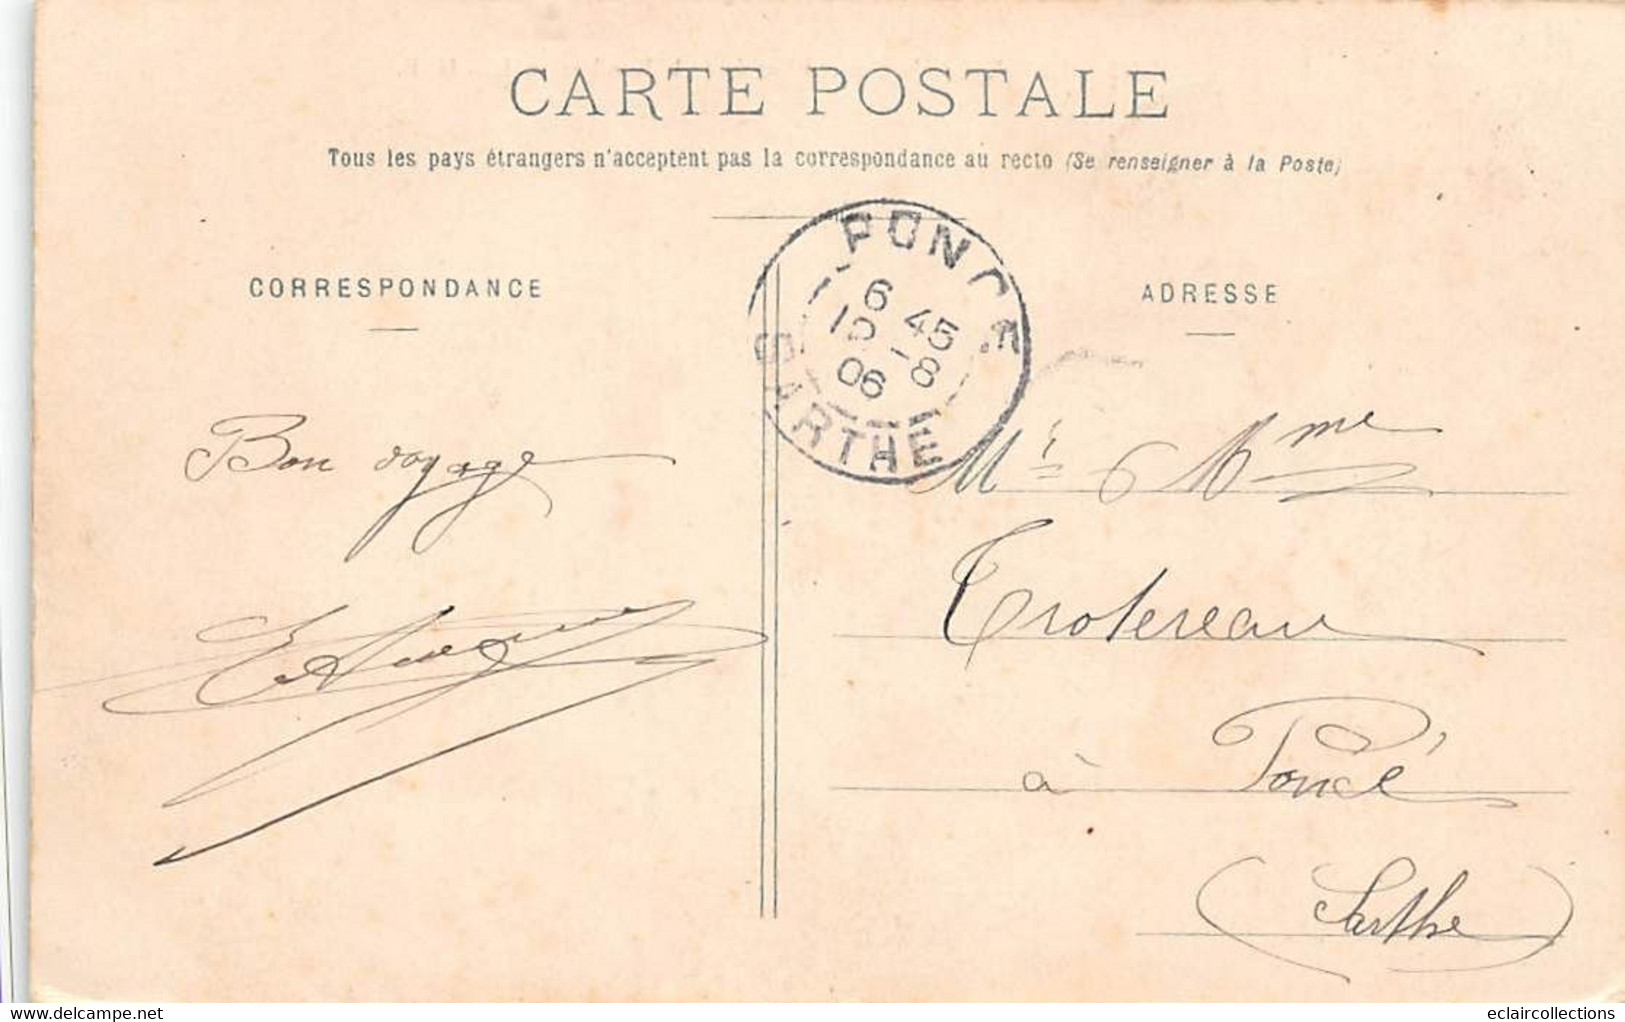 CARTE POSTALE
Tous les pays étrangers n'acceptent pas la correspondance au recto (Se renseigner à la Poste)
PONCE
6 45
10 -8
06
SARTHE
CORRESPONDANCE
ADRESSE
Bon voyage
Mr & Mme
Trotereau
à Poncé
(Sarthe)
www.delcampe.net
eclaircollections